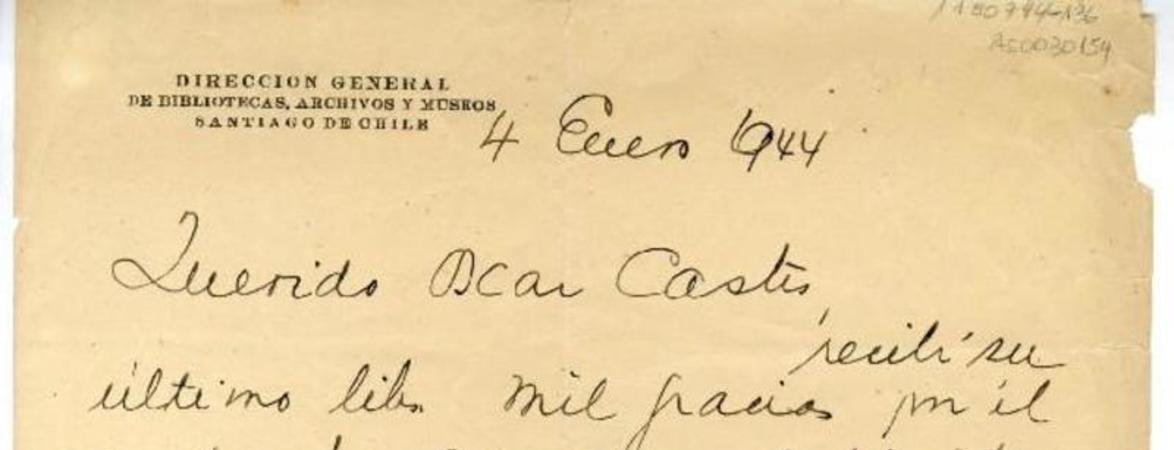 1180794-136
AE0030154
DIRECCION GENERAL
DE BIBLIOTECAS, ARCHIVOS Y MUSEOS
SANTIAGO DE CHILE
4 Enero 1944
Querido Oscar Castro,
recibí su
último libro mil gracias por él